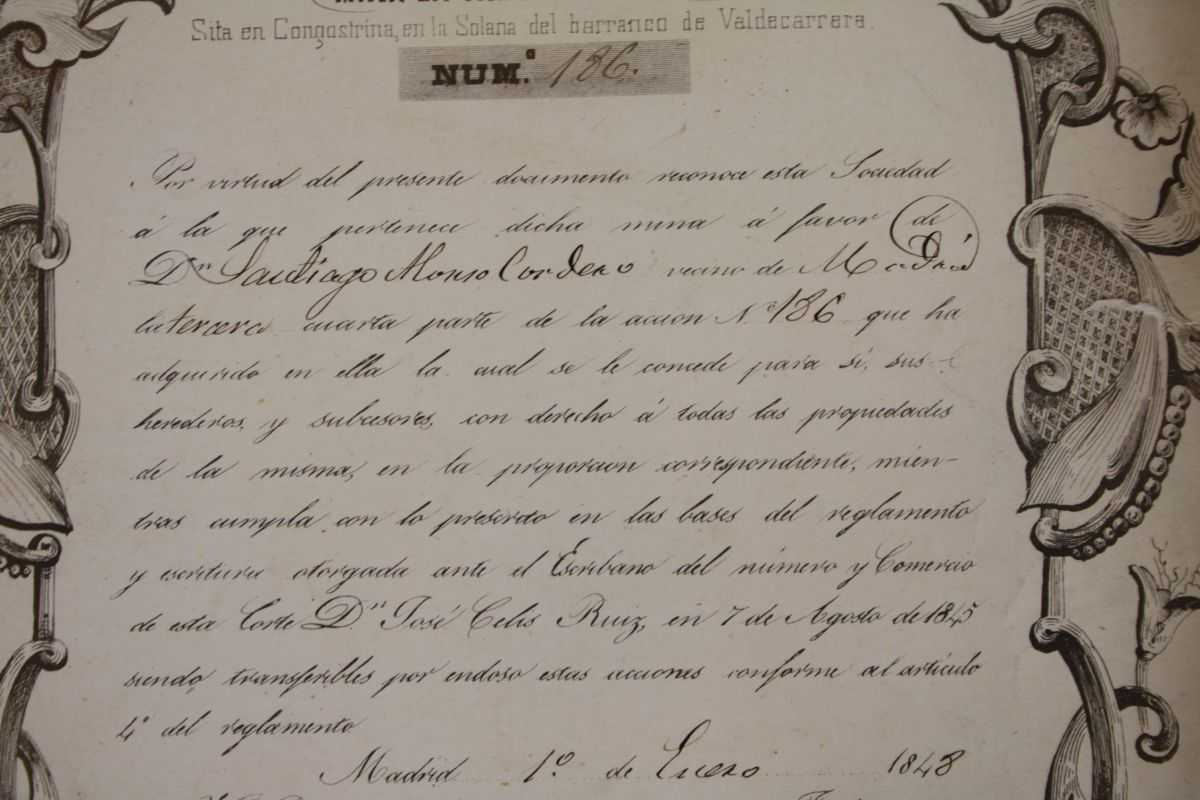 Sita en Congostrina, en la Solana del barranco de Valdecarrera.
NUM.º 186.
Por virtud del presente documento reconoce esta Sociedad
á la que pertenece dicha mina á favor de
Dn Santiago Alonso Cordero vecino de Madrid
la tercera cuarta parte de la accion N.º 186 que ha
adquirido en ella la cual se le concede para sí, sus
herederos, y subcesores, con derecho á todas las propiedades
de la misma, en la proporcion correspondiente, mien-
tras cumpla con lo prescrito en las bases del reglamento
y escritura otorgada ante el Escribano del número y Comercio
de esta Corte Dn José Celis Ruiz, en 7 de Agosto de 1845
siendo transferibles por endoso estas acciones conforme al artículo
4º del reglamento
Madrid 1º de Enero 1848